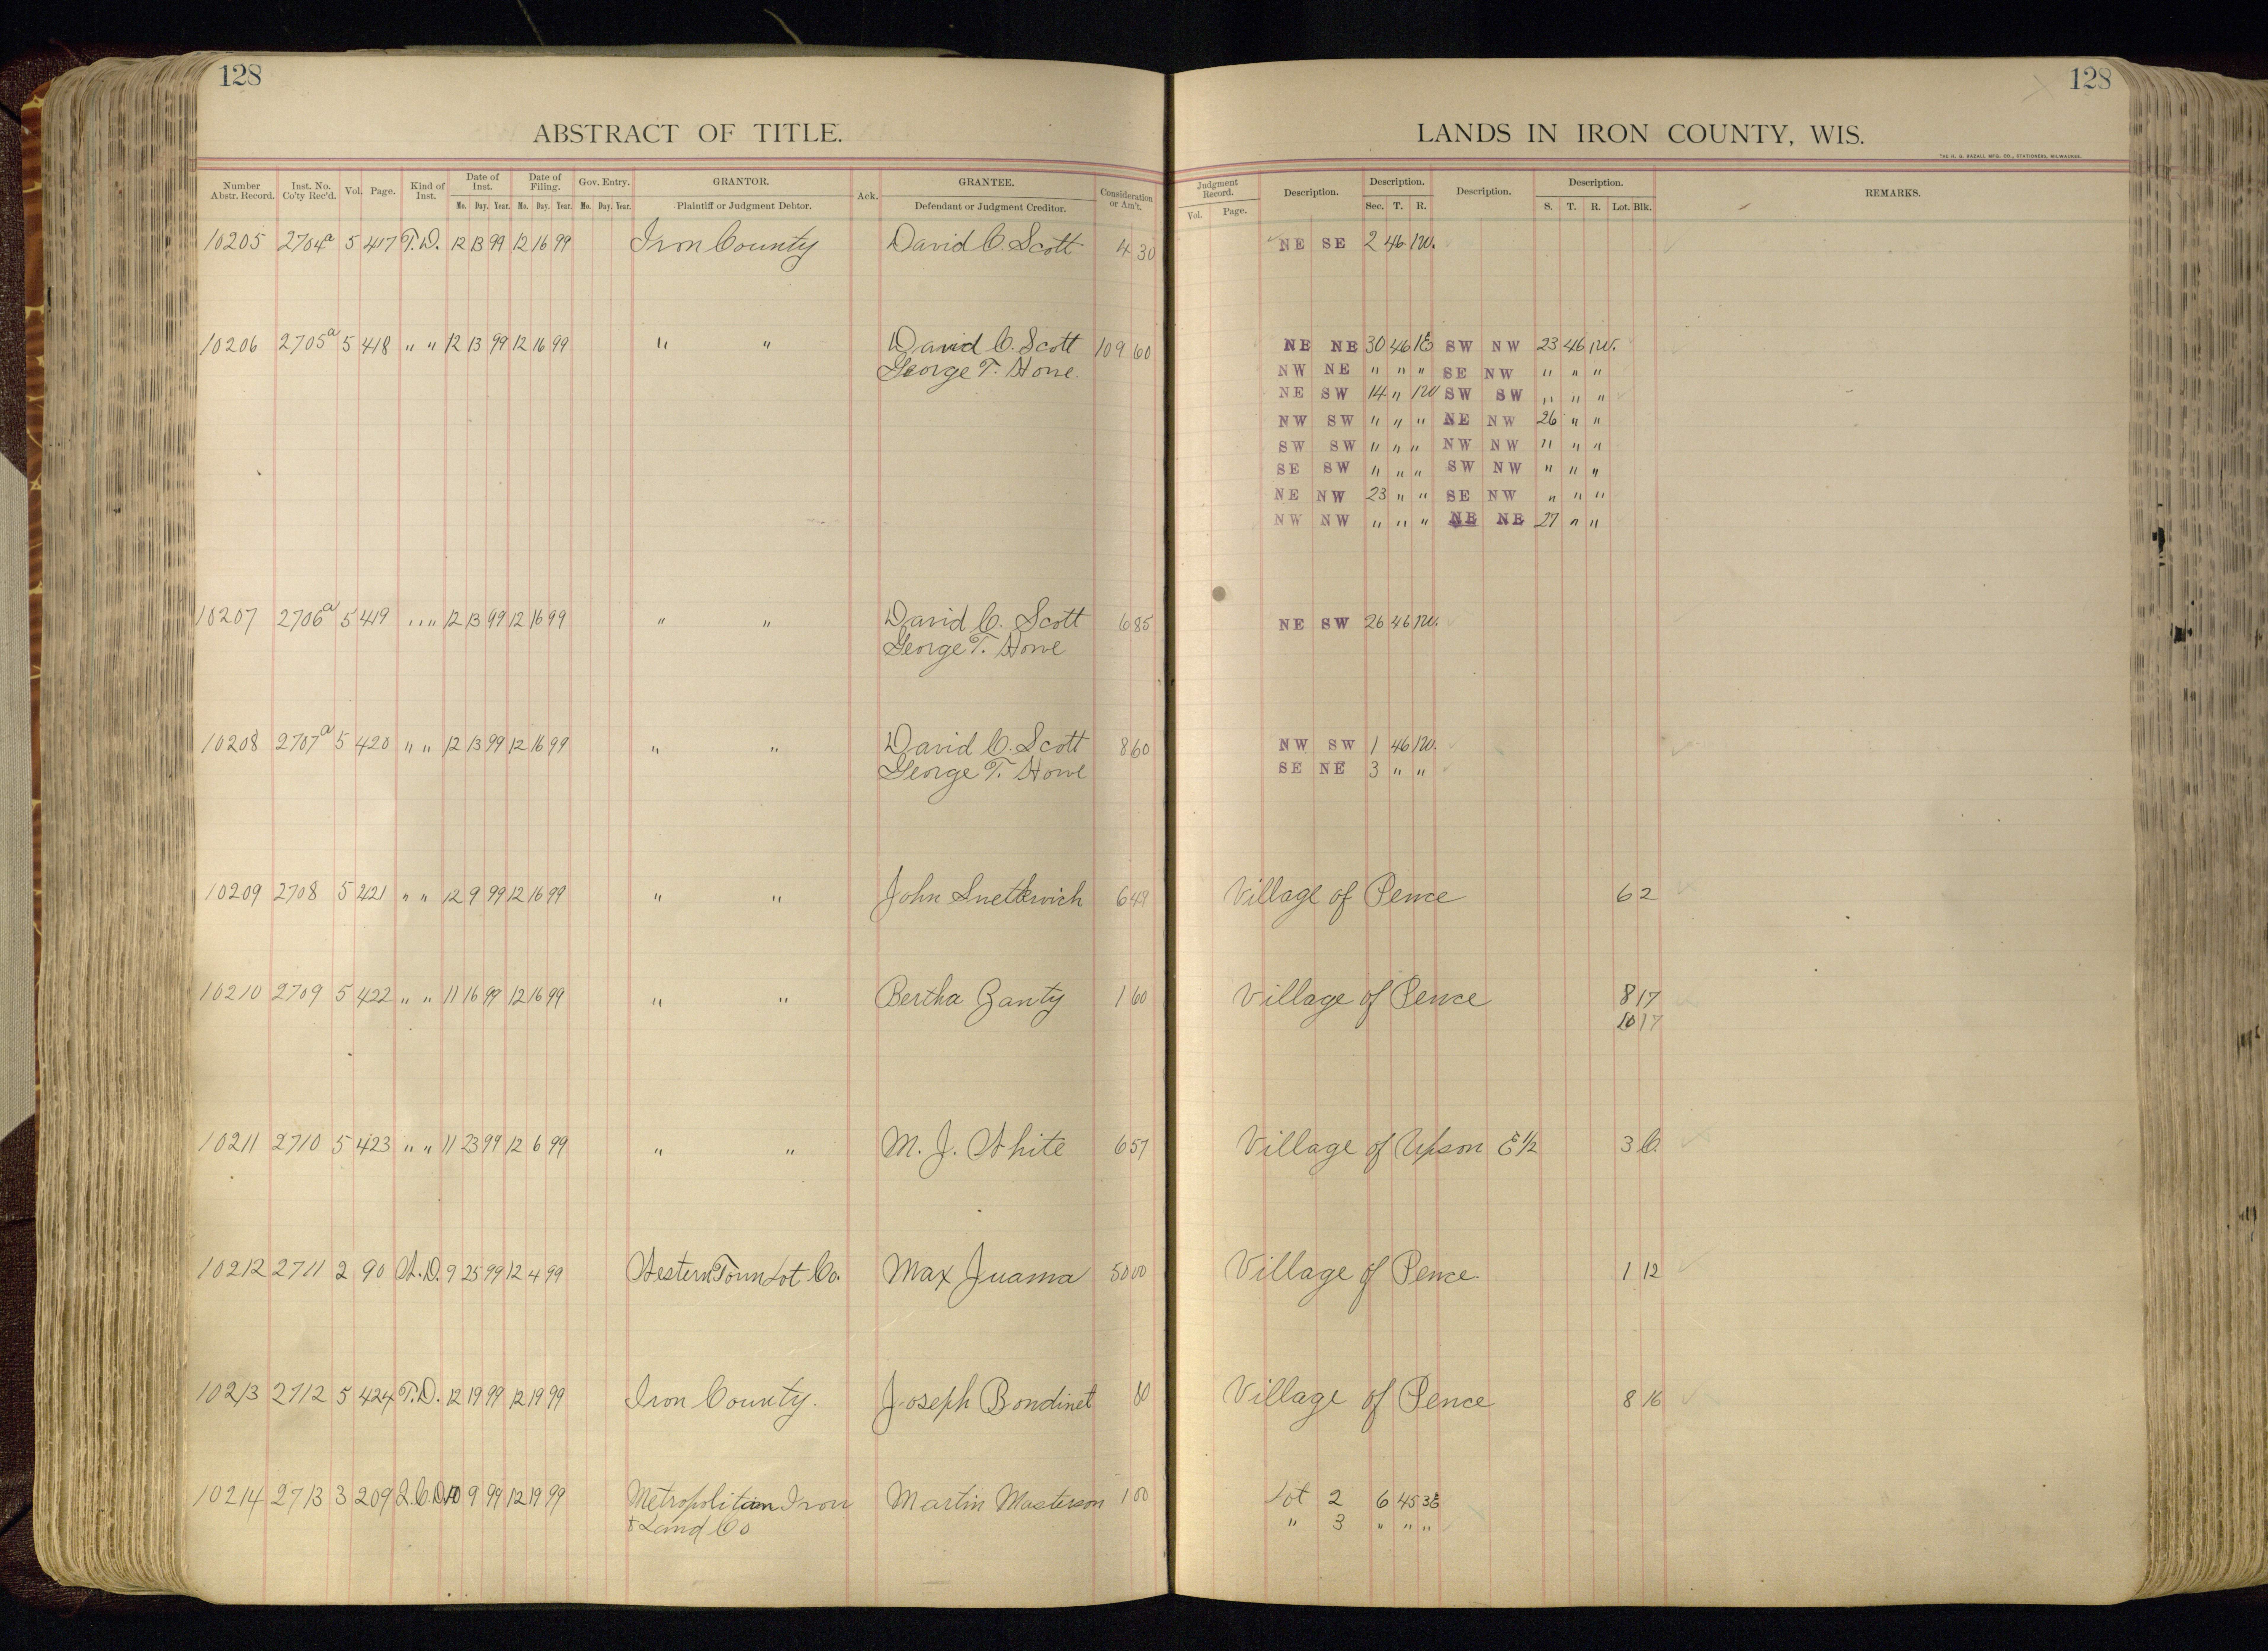 128
128
ABSTRACT OF TITLE.
LANDS IN IRON COUNTY, WIS.
THE H. G. RAZALL MFG. CO., STATIONERS, MILWAUKEE.
Number Abstr. Record. Inst. No. Co'ty Rec'd. Vol. Page. Kind of Inst. Date of Inst. Mo. Day. Year. Date of Filing. Mo. Day. Year. Gov. Entry. Mo. Day. Year. GRANTOR. Plaintiff or Judgment Debtor. Ack. GRANTEE. Defendant or Judgment Creditor. Consideration or Am't.
Judgment Record. Vol. Page. Description. Description. Sec. T. R. Description. Description. S. T. R. Lot. Blk. REMARKS.
10205 2704a 5 417 T.D. 12 13 99 12 16 99 Iron County David C. Scott 4 30 NE SE 2 46 1W.
10206 2705a 5 418 " " 12 13 99 12 16 99 " " David C. Scott 109 60 NE NE 30 46 1E SW NW 23 46 1W.
George T. Howe. NW NE " " " SE NW " " "
NE SW 14 " 1W SW SW " " "
NW SW " " " NE NW 26 " "
SW SW " " " NW NW " " "
SE SW " " " SW NW " " "
NE NW 23 " " SE NW " " "
NW NW " " " NE NE 27 " "
10207 2706a 5 419 " " 12 13 99 12 16 99 " " David C. Scott 6 85 NE SW 26 46 1W.
George T. Howe
10208 2707a 5 420 " " 12 13 99 12 16 99 " " David C. Scott 8 60 NW SW 1 46 1W.
George T. Howe SE NE 3 " "
10209 2708 5 421 " " 12 9 99 12 16 99 " " John 6 49 Village of Pence 6 2
10210 2709 5 422 " " 11 16 99 12 16 99 " " Bertha Zanty 1 60 Village of Pence 8 17
10 17
10211 2710 5 423 " " 11 23 99 12 6 99 " " M. J. White 6 57 Village of Upson E 1/2 3 C.
10212 2711 2 90 W.D. 9 25 99 12 4 99 Western Town Lot Co. Max Juama 50 00 Village of Pence. 1 12
10213 2712 5 424 T.D. 12 19 99 12 19 99 Iron County. Joseph Bondinet 80 Village of Pence 8 16
10214 2713 3 209 Q.C.D. 10 9 99 12 19 99 Metropolitian Iron Martin Masterson 1 00 Lot 2 6 45 3E
& Land Co " 3 " " "